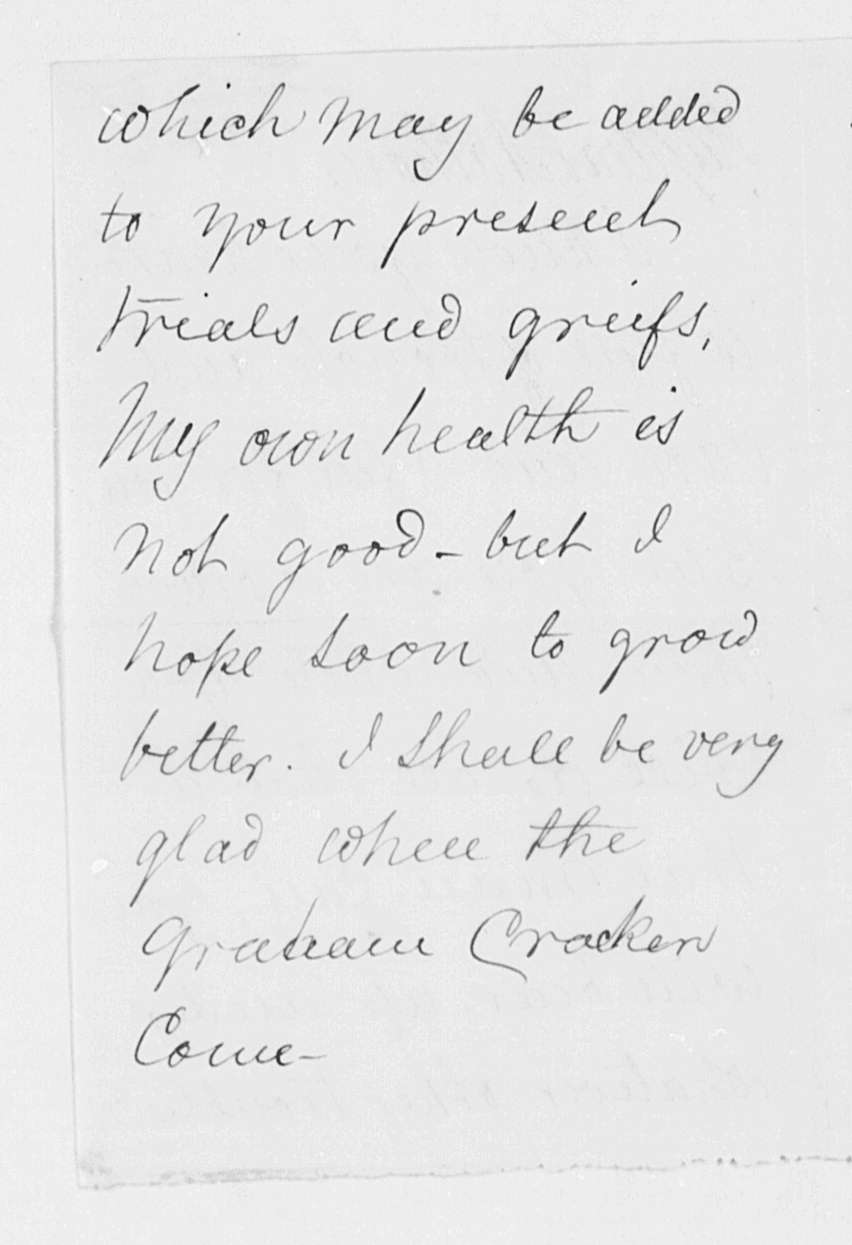 which may be added
to your present
trials and griefs,
My own health is
not good - but I
hope soon to grow
better. I shall be very
glad when the
Graham Cracker
Come -